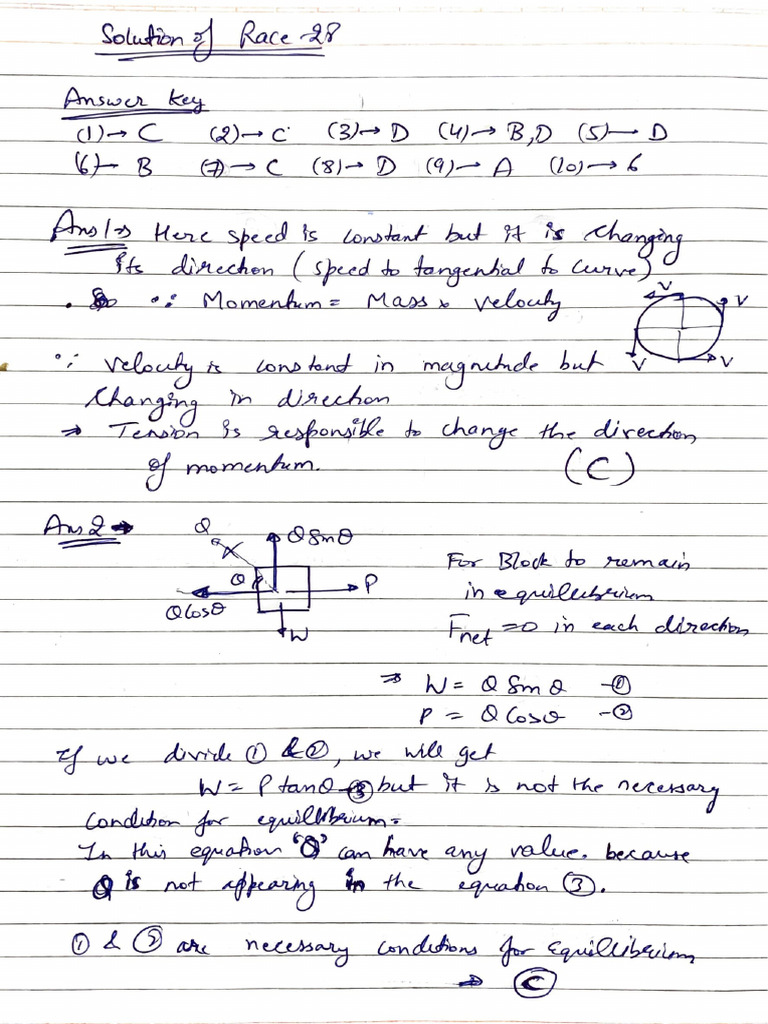 Solution of Race-28
Answer Key
(1)→ C (2)→ C (3)→ D (4)→ B,D (5)→ D
(6)→ B (7)→ C (8)→ D (9)→ A (10)→ 6
Ans 1→ Here speed is constant but it is changing
its direction (speed to tangential to curve)
∵ Momentum = Mass x velocity
V V
V V
∵ velocity is constant in magnitude but
changing in direction
⇒ Tension is responsible to change the direction
of momentum. (C)
Ans 2→
Q Q Sinθ
θ P
Q Cosθ
W
For Block to remain
in equilibrium
Fnet = 0 in each direction
⇒ W = Q Sinθ –①
P = Q Cosθ –②
If we divide ① & ②, we will get
W = P tanθ –③ but it is not the necessary
condition for equillibrium.
In this equation 'Q' can have any value. because
Q is not appearing in the equation ③.
① & ② are necessary conditions for equillibrium
→ Ⓒ